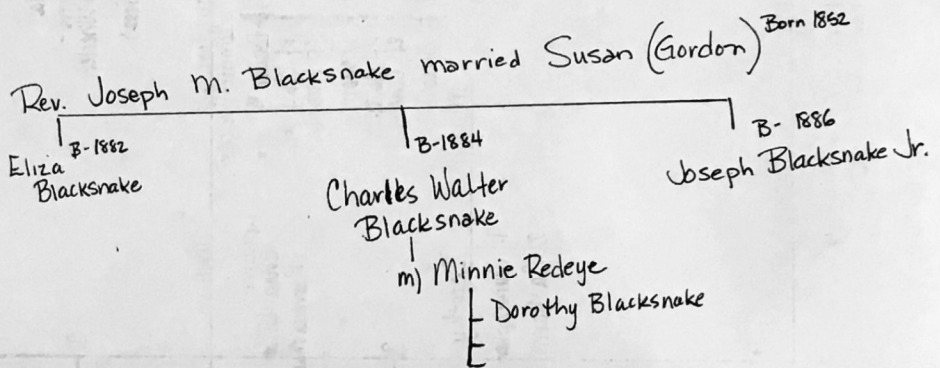 Rev. Joseph M. Blacksnake married Susan (Gordon) Born 1852
Eliza B-1882
Blacksnake
B-1884
Charles Walter
Blacksnake
m) Minnie Redeye
Dorothy Blacksnake
B- 1886
Joseph Blacksnake Jr.